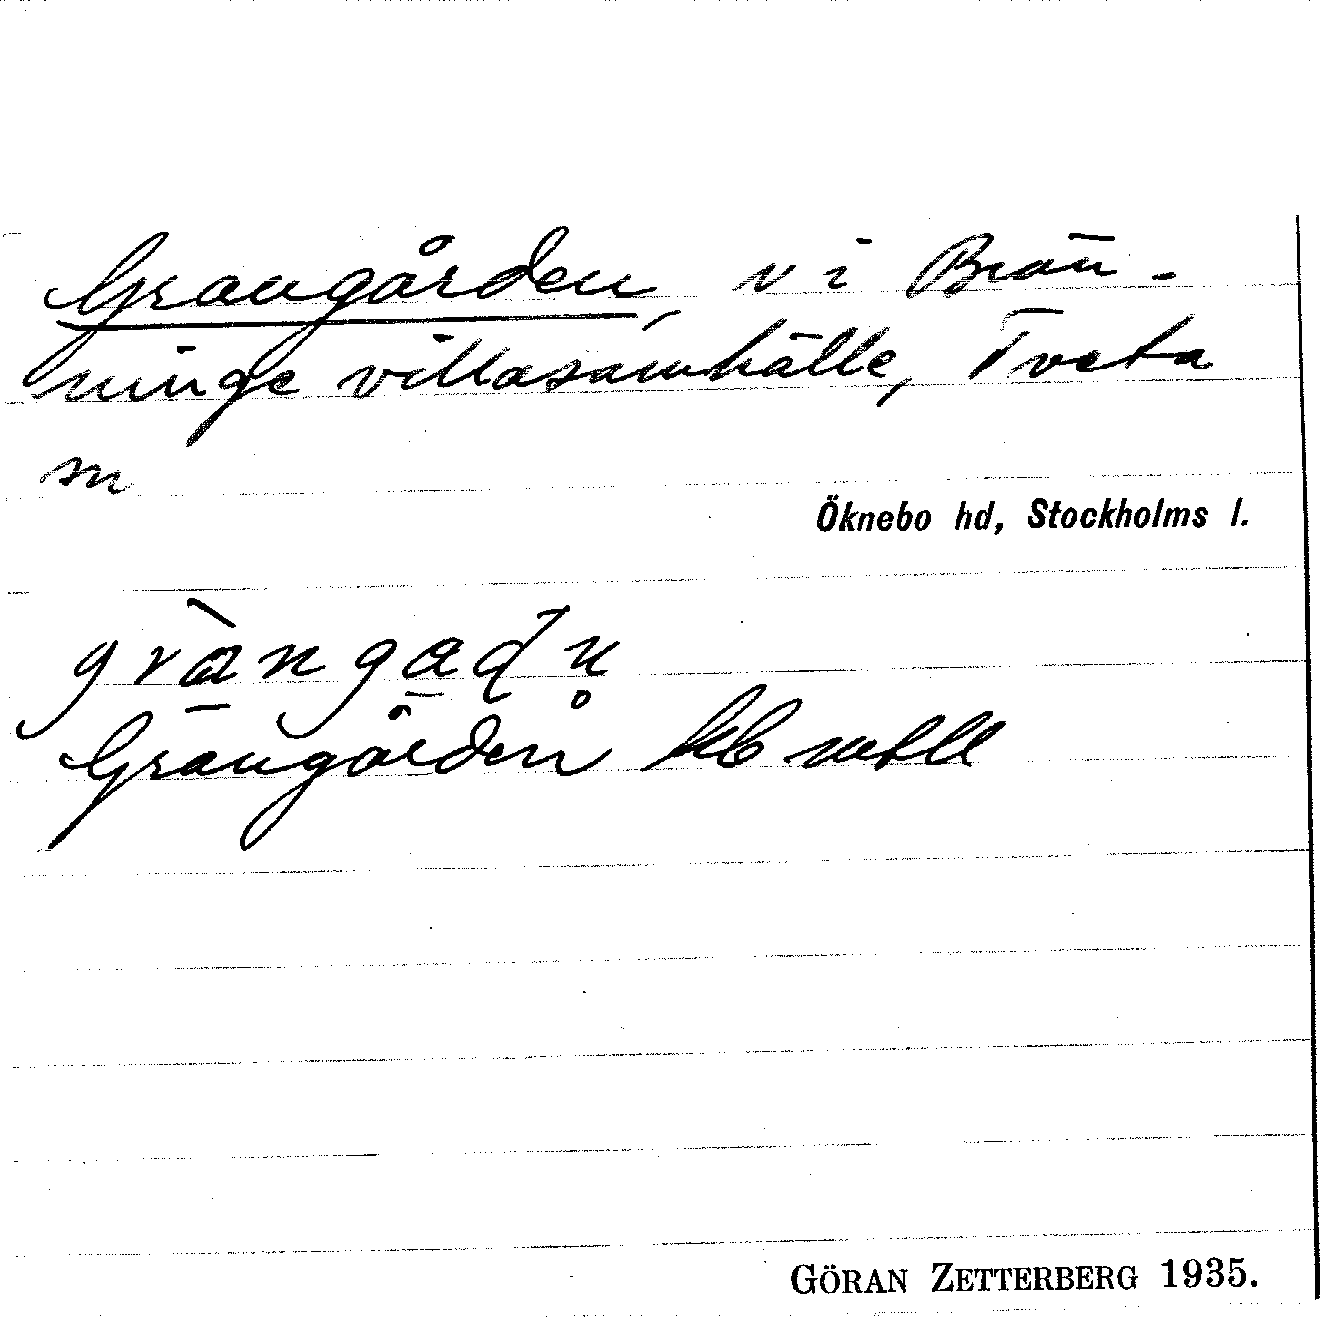 Grangården, v i Brän-
ninge villasamhälle, Tveta
sn
Öknebo hd, Stockholms l.
gràngaḍn̥
Grangården
GÖRAN ZETTERBERG 1935.